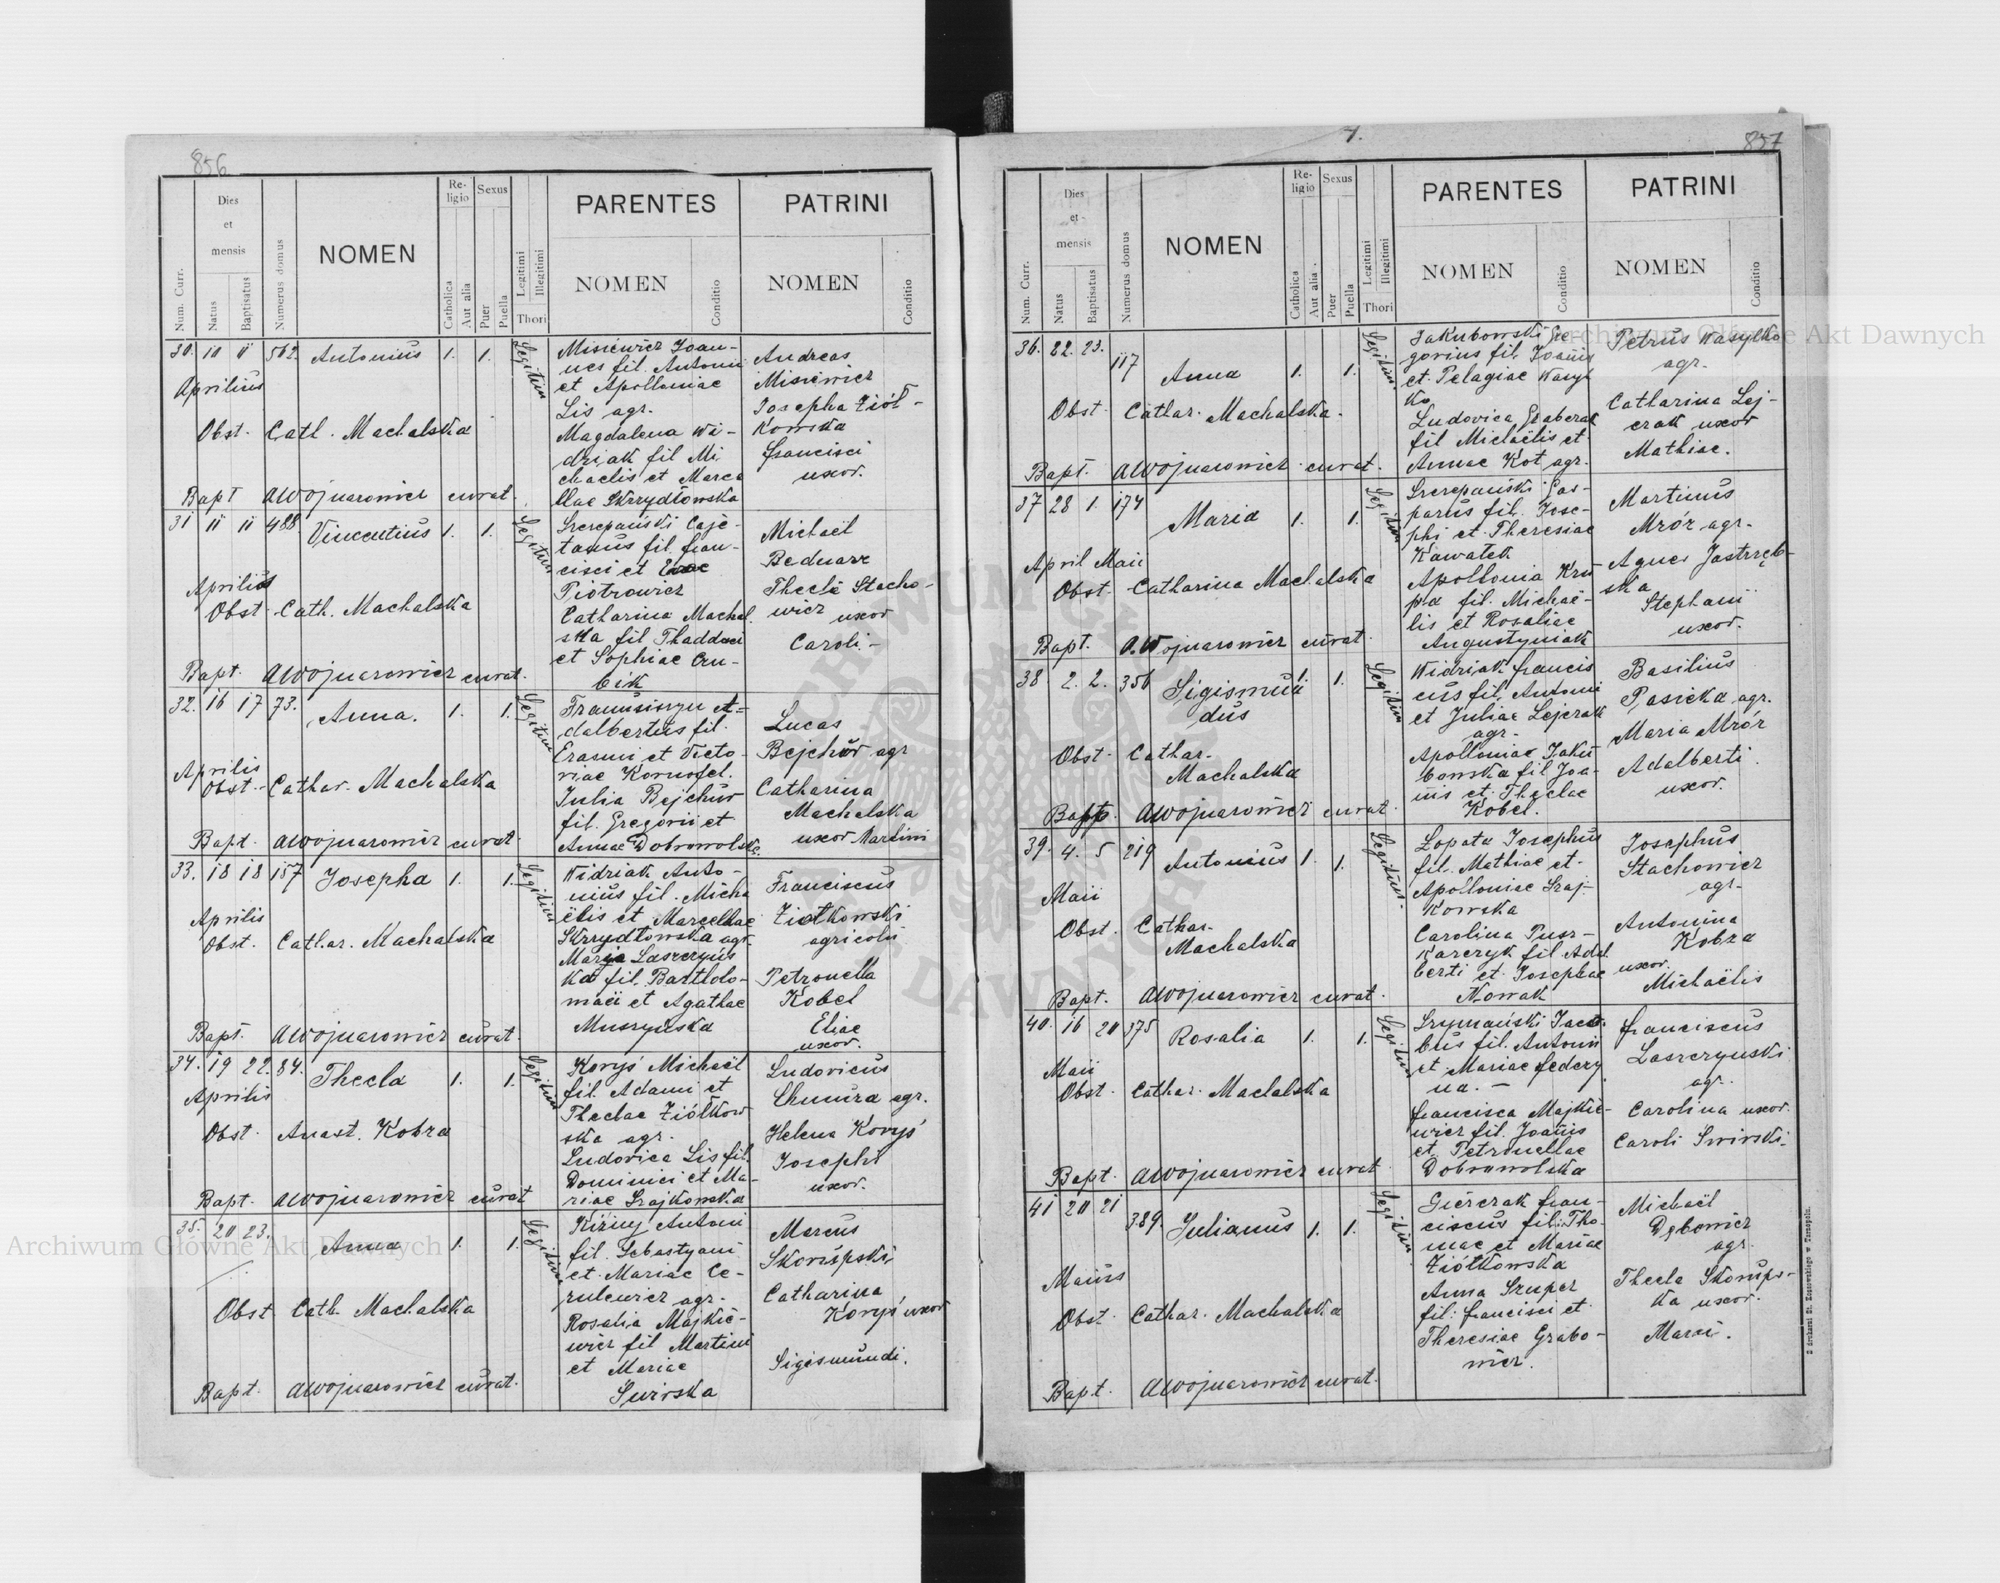 856
Num. Curr.
Dies et mensis
Natus
Baptisatus
Numerus domus
NOMEN
Religio
Catholica
Aut alia
Sexus
Puer
Puella
Legitimi
Illegitimi
Thori
PARENTES
NOMEN
Conditio
PATRINI
NOMEN
Conditio
30. 10 11 502. Antonius 1. 1. Legitim
Aprilius
Obst. Cath. Machalska
Bapt AWojnarowicz curat.
Misiewicz Joan-
nes fil. Antonii
et Apolloniae
Lis agr.
Magdalena Wi-
dziak fil Mi
chaelis et Marce
llae Skrzydłowska
Andreas
Misiewicz
Josepha Ziół-
kowska
Francisci
uxor.
31 11 11 488. Vincentius 1. 1. Legitim
Aprilius
Obst. Cath. Machalska
Bapt. AWojnarowicz curat.
Szczepański Caje-
tanus fil. Fran-
cisci et
Piotrowicz
Catharina Machal.
ska fil Thaddaei
et Sophiae Cru-
bik
Michaël
Bednarz
Thecla Stacho-
wicz uxor
Caroli.-
32. 16 17 73. Anna. 1. 1. Legitim
Aprilis
Obst.- Cathar. Machalska
Bapt. AWojnarowicz curat.
A=
dalbertus fil.
Erasmi et Victo-
riae Kornofel.
Julia Bejchur
fil. Gregorii et
Annae Dobrowolska.
Lucas
Bejchur agr
Catharina
Machalska
uxor Martini
33. 18 18 157 Josepha 1. 1. Legitim
Aprilis
Obst. Cathar. Machalska
Bapt. AWojnarowicz curat.
Widziak Anto-
nius fil. Micha
ëlis et Marcellae
Skrzydłowska agr.
Maria Laszczyńs
ka fil. Bartholo-
maei et Agathae
Muszyńska
Franciscus
Ziołkowski
agricola
Petronella
Kobel
Eliae
uxor.
34. 19 22. 84. Thecla 1. 1. Legitim
Aprilis
Obst. Anast. Kobza
Bapt. AWojnarowicz curat
Koryś Michaël
fil. Adami et
Theclae Ziółkow
ska agr.
Ludovica Lis fil.
Dominici et Ma-
riae Szajkowska
Ludovicus
Chmura agr.
Helena Koryś
Josephi
uxor.
35. 20 23. Anna 1. 1. Legitim
Obst Cath. Machalska
Bapt. AWojnarowicz curat.
Antoni
fil. Sebastyani
et Mariae Ce-
zulewicz agr.
Rosalia Majkie-
wicz fil Martini
et Mariae
Swirska
Marcus
Skorupski
Catharina
Koryś uxor
Sigismundi.
7.
857
Num. Curr.
Dies et mensis
Natus
Baptisatus
Numerus domus
NOMEN
Religio
Catholica
Aut alia
Sexus
Puer
Puella
Legitimi
Illegitimi
Thori
PARENTES
NOMEN
Conditio
PATRINI
NOMEN
Conditio
36. 22. 23. 117 Anna 1. 1. Legitim
Obst. Cathar. Machalska.
Bapt. AWojnarowicz curat.
Jakubowski Gre-
gorius fil. Joanis
et Pelagiae Wasyl
ko
Ludovica Graberak
fil Michaëlis et
Annae Kot agr.
Petrus Wasylko
agr.
Catharina Lej-
czak uxor
Mathiae.
37 28 1. 174 Maria 1. 1. Legitim
April Maii
Obst. Catharina Machalska
Bapt. A.Wojnarowicz curat.
Szczepański Gas-
parus fil. Jose-
phi et Theresiae
Kawałek
Apollonia Kru
pa fil. Michaë-
lis et Rosaliae
Augustyniak
Martinus
Mróz agr.
Agnes Jastrzęb-
ska
Stephani
uxor.
38 2. 2. 356 Sigismun
dus 1. 1. Legitim
Obst. Cathar.
Machalska
Bapt. AWojnarowicz curat.
Widziak Francis
cus fil. Antoni
et Juliae Lejczak
agr.
Apolloniae Jaku
bowska fil Joa-
nis et Theclae
Kobel.
Basilius
Pasicka agr.
Maria Mróz
Adalberti
uxor.
39. 4. 5 219 Antonius 1. 1. Legitim.
Maii
Obst. Cathar.
Machalska
Bapt. AWojnarowicz curat.
Łopata Josephus
fil. Mathiae et
Apolloniae Szaj-
kowska
Carolina Pusz-
karczyk fil Adal
berti et Josephae
Nowak
Josephus
Stachowicz
agr.
Antonina
Kobza
uxor
Michaëlis
40. 16 20 375 Rosalia 1. 1. Legitim
Maii
Obst. Cathar. Machalska
Bapt. AWojnarowicz curat
Szymański Jaco-
bus fil. Antonii
et Mariae Federy
na. -
Francisca Majkie-
wicz fil. Joanis
et Petronellae
Dobrowolska
Franciscus
Laszczynski
agr.
Carolina uxor.
Caroli Swirski.
41 20 21 389 Julianus 1. 1. Legitim
Maius
Obst. Cathar. Machalska
Bapt. AWojnarowicz curat.
Gierczak Fran-
ciscus fil. Tho-
mae et Mariae
Ziółkowska
Anna Szuper
fil. Francisci et
Theresiae Grabo-
wicz.
Michaël
Dębowicz
agr.
Thecla Skorups-
ka uxor.
Marci.
Z drukarni St. Kossowskiego w Tarnopolu.
Archiwum Główne Akt Dawnych
Archiwum Główne Akt Dawnych